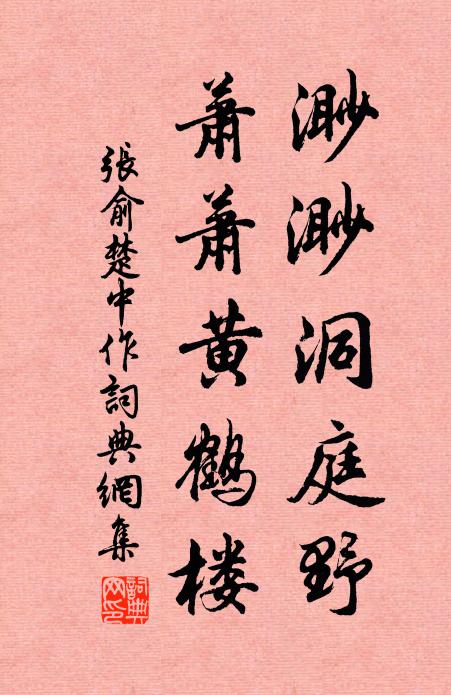 渺渺洞庭野
萧萧黄鹤楼
張俞楚中作詞典網集
詞典网印